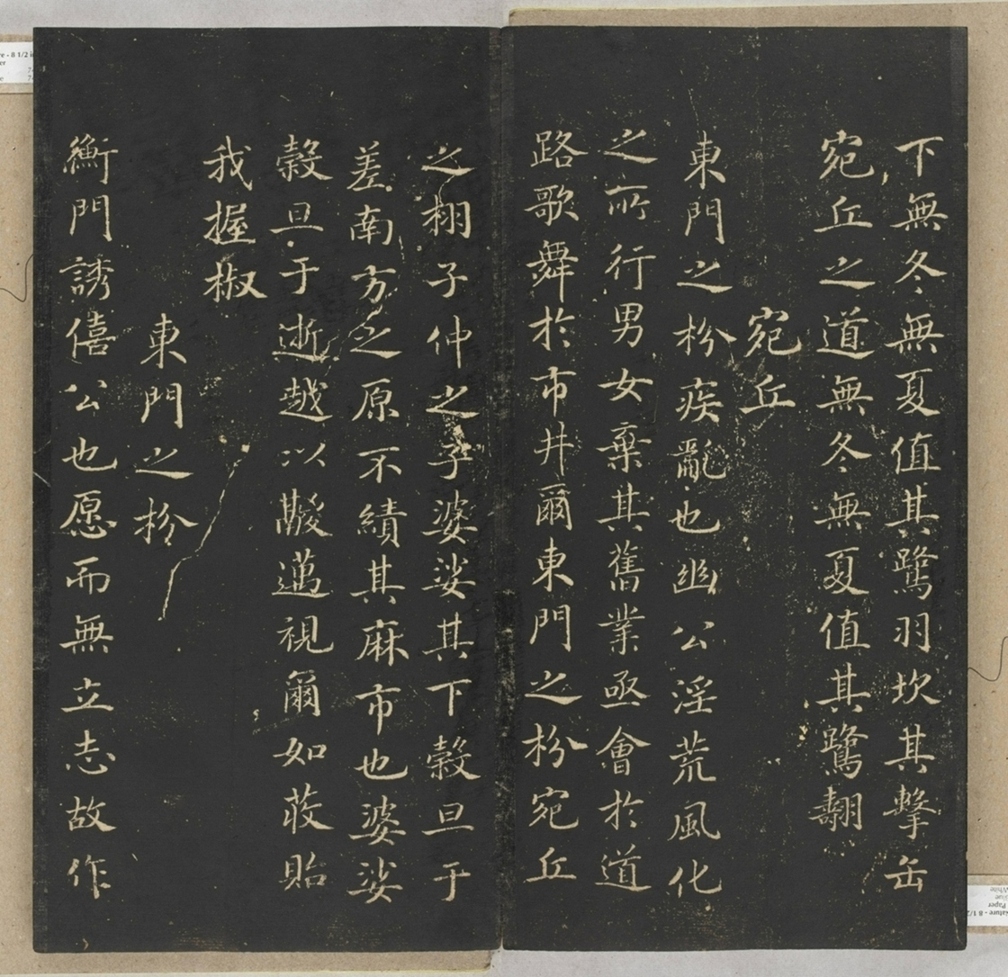 下無冬無夏值其鷺羽坎其擊缶
宛丘之道無冬無夏值其鷺翿
宛丘
東門之枌疾亂也幽公淫荒風化
之所行男女棄其舊業亟會於道
路歌舞於市井爾東門之枌宛丘
之栩子仲之子婆娑其下穀旦于
差南方之原不績其麻市也婆娑
穀旦于逝越以鬷邁視爾如荍貽
我握椒
東門之枌
衡門誘僖公也愿而無立志故作